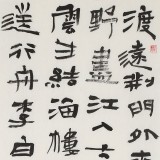 渡遠荆門
野盡江入大
雲生結海樓
送行舟李白